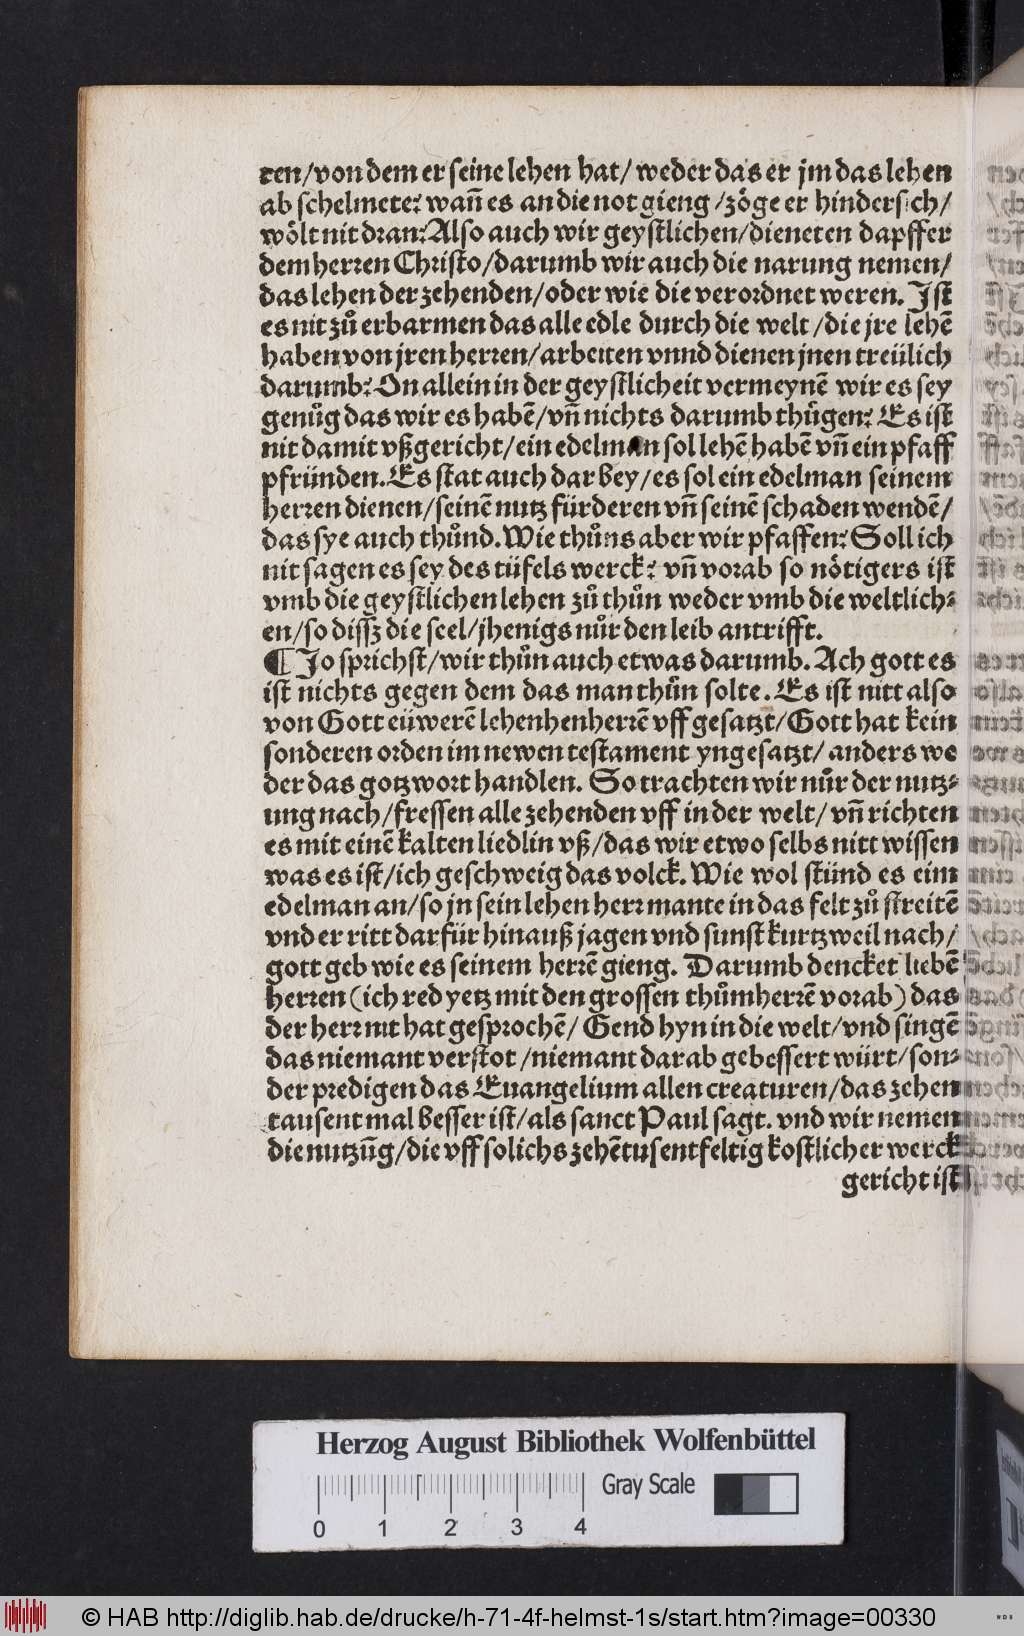 ten/von dem er seine lehen hat/ weder das er jm das lehen
ab schelmete? wañ es an die not gieng /zöge er hindersich/
wölt nit dran? Also auch wir geystlichen/dieneten dapffer
dem herren Christo/darumb wir auch die narung nemen/
das lehen der zehenden/oder wie die verordnet weren. Ist
es nit zů erbarmen das alle edle durch die welt /die jre lehẽ
haben von jren herren/arbeiten vnnd dienen jnen treülich
darumb? On allein in der geystlicheit vermeynẽ wir es sey
genůg das wir es habẽ/vñ nichts darumb thůgen? Es ist
nit damit vßgericht/ein edelman sol lehẽ habẽ vñ ein pfaff
pfründen. Es stat auch dar bey/es sol ein edelman seinem
herren dienen/seinẽ nutz fürderen vñ seinẽ schaden wendẽ/
das sye auch thůnd. Wie thůns aber wir pfaffen? Soll ich
nit sagen es sey des tüfels werck? vñ vorab so nötigers ist
vmb die geystlichen lehen zů thůn weder vmb die weltlich⸗
en/so dissz die seel/jhenigs nůr den leib antrifft.
¶ Jo sprichst/wir thůn auch etwas darumb. Ach gott es
ist nichts gegen dem das man thůn solte. Es ist nitt also
von Gott eüwerẽ lehenhenherrẽ vff gesatzt/Gott hat kein
sonderen orden im newen testament yngesatzt/ anders we
der das gotzwort handlen. So trachten wir nůr der nutz⸗
ung nach/fressen alle zehenden vff in der welt/ vñ richten
es mit einẽ kalten liedlin vß/das wir etwo selbs nitt wissen
was es ist/ich geschweig das volck. Wie wol stünd es eim
edelman an/so jn sein lehen herr mante in das felt zů streitẽ
vnd er ritt darfür hinauß jagen vnd sunst kurtzweil nach/
gott geb wie es seinem herrẽ gieng. Darumb dencket liebẽ
herren (ich red yetz mit den grossen thůmherrẽ vorab) das
der herr nit hat gesprochẽ/ Gend hyn in die welt/vnd singẽ
das niemant verstot /niemant darab gebessert würt/son⸗
der predigen das Euangelium allen creaturen/das zehen
tausent mal besser ist/als sanct Paul sagt. vnd wir nemen
die nutzũg/die vff solichs zehẽtusentfeltig kostlicher werck
gericht ist
Herzog August Bibliothek Wolfenbüttel
Gray Scale
0 1 2 3 4
© HAB http://diglib.hab.de/drucke/h-71-4f-helmst-1s/start.htm?image=00330